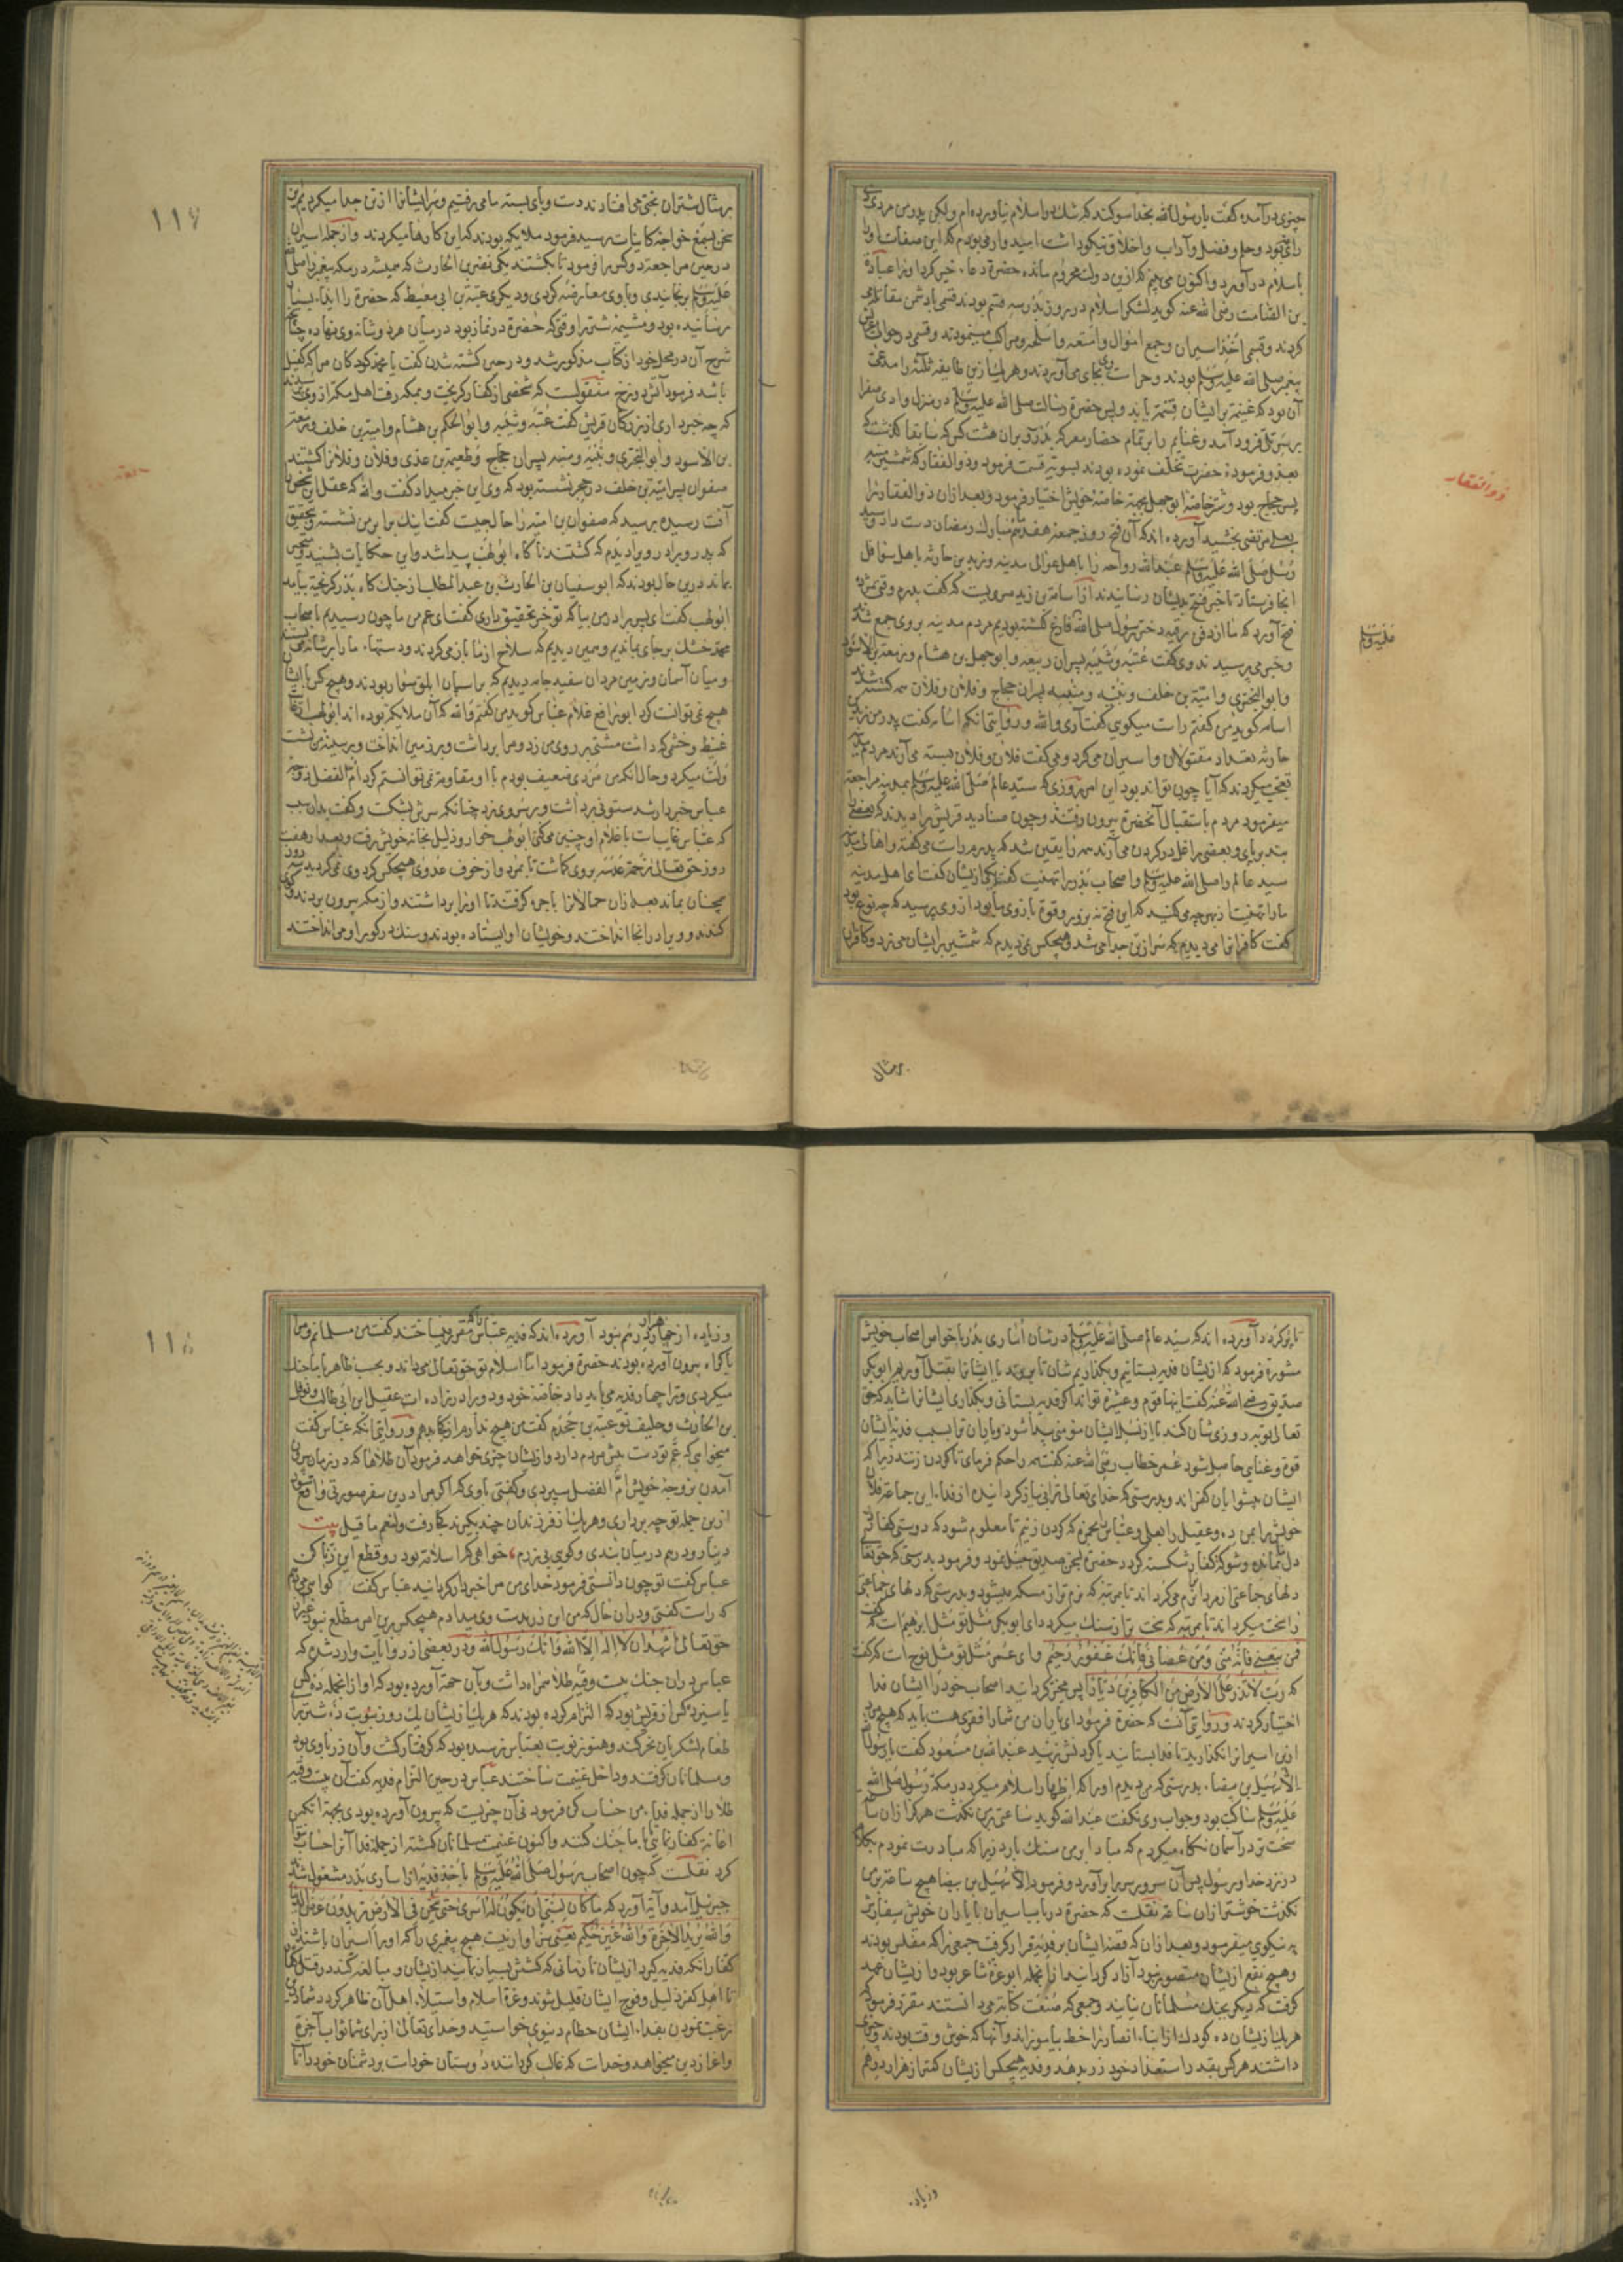 چیزی درآمده گفت یا رسول الله بخدا سوکند که شک در اسلام نیاورده ام ولیکن پدر من مردی
رای بود و حلم و فضل و آداب و اخلاق نیکو داشت امیدوار می بودم که این صفات او را
باسلام درآورد و اکنون می بینم که ازین دولت محروم مانده حضرة دعاء خیر کرد او را عبادة
بن الصامت رضی الله عنه کوید لشکر اسلام در روز بدر سه قسم بودند قسمی با دشمن مقاتله می
کردند و قسمی اخذ اسیران و جمع اموال و امتعه و اسلحه و مراکب مینمودند و قسمی در حوالی عریش
پیغمبر صلی الله علیه وسلم بودند و حراست وی بجای می آوردند و هر یک ازین طایفه ثلثه را مدعی
آن بود که غنیمة برایشان قسمة یابد و پس حضرة رسالت صلی الله علیه وسلم در منزل وادی صفرا
بر سر تلی فرود آمد و غنایم را بر تمام حضار معرکه بدر و بران هشت کس که سابقا گذشت که
بعذر و فرموده حضرت تخلف نموده بودند بسویة قسمت فرمود و ذوالفقار که شمشیر منبه
پسر حجاج بود و شتر خاصه ابوجهل بجهة خاصه خویش اختیار فرمود و بعد ازان ذوالفقار را
بعلی مرتضی بخشید آورده اند که آن فتح روز جمعه هفدهم مبارک رمضان دست داد و سید
رسل صلی الله علیه وسلم عبدالله رواحه را باهل عوالی مدینه و زید بن حارثه باهل سوافل
انجا فرستاد تا خبر فتح بدیشان رسانیدند از اسامه بن زید مرویست که گفت پدرم وقتی مژده
فتح آورد که ما از دفن رقیه دختر رسول صلی الله فارغ گشته بودیم مردم مدینه بر وی جمع شدند
و خبر می پرسیدند وی گفت عتبه و شیبه پسران ربیعه و ابوجهل بن هشام و زمعة بن الاسود
و ابو البختری و امیة بن خلف و نبیه و منبه پسران حجاج و فلان و فلان همه کشته شدند
اسامه کوید من گفتم راست میکوی گفت آری والله و روایتی آنکه اسامه گفت پدر من زید بن
حارثه تعداد مقتولان و اسیران می کرد و می گفت فلان و فلان بسته می آرند مردم مدینه
تعجب میکردند که آیا چون تواند بود این امر روزی که سید عالم صلی الله علیه وسلم بمدینه مراجعة
میفرمود مردم باستقبال آنحضرة بیرون رفتند و چون صنادید قریش را دیدند که بعضی را
بند بر پای و بعضی را غل در کردن می آرند همه را یقین شد که پدرم راست می گفته و اهالی مدینه
سید عالم را صلی الله علیه وسلم و اصحاب بدر را تهنیت گفتند یکی از یشان گفت ای اهل مدینه
ما را تهنیت از بهر چه می کنید که این فتح نه بزور و قوة بازوی ما بود از وی پرسید که چه نوع بود
گفت کافرانرا می دیدیم که سر از تن جدا می شد و هیچکس نمی دیدم که شمشیر بر ایشان می زد و کافران
ذوالفقار
علیه وسلم
بر مثال
بر مثال شتران بختی می افتادند دست و پای بسته ما می رفتیم و سر ایشانرا از تن جدا میکردیم این
سخن بسمع خواجه کاینات رسید فرمود ملایکه بودند که این کارها میکردند و از جمله اسیران
در حین مراجعت دو کس را فرمود تا بکشتند یکی نضر بن الحارث که همیشه در مکه پیغمبر را صلی الله
علیه وسلم برنجانیدی و با وی معارضه کردی و دیکری عقبة بن ابی معیط که حضرة را ایذاء بسیار
رسانیده بود و مشیمه شتر را وقتی که حضرة در نماز بود در میان هر دو شانه وی نهاده چنانچه
شرح آن در محل خود از کتاب مذکور شد و در حین کشته شدن گفت یا محمد کودکان مرا که کفیل
باشد فرمود آتش دوزخ منقولست که شخصی از کفار کریخت و بمکه رفت اهل مکه از وی پرسیدند
که چه خبر داری از بزرکان قریش گفت عتبه و شیبه و ابوالحکم بن هشام و امیة بن خلف و زمعة
بن الاسود و ابو البختری و نبیه و منبه پسران حجاج و طعیمه بن عدی و فلان و فلان را کشتند
صفوان پسر امیة بن خلف در حجر نشسته بود که وی این خبر میداد گفت والله که عقل این شخص را
آفت رسیده بپرسید که صفوان بن امیه را حال چیست گفت اینک برابر من نشسته و بتحقیق
که پدر و برادر وی را دیدم که کشتند ناگاه ابولهب پیدا شد و این حکایات بشنید و متحیر
بماند درین حال بودند که ابوسفیان بن الحارث بن عبدالمطلب از جنک گاه بدر کریخته بیامد
ابولهب گفت ای پسر برادر من بیا که تو خبر تحقیق داری گفت ای عم من ما چون رسیدیم باصحاب
محمد خشک بر جای بماندیم و همین دیدیم که سلاح از ما باز می کردند و دستهاء ما را بر شانه می بستند
و میان آسمان و زمین مردان سفید جامه دیدیم که بر اسبان ابلق سوار بودند و هیچ کس با ایشان
هیچ نمی توانست کرد ابو رافع غلام عباس کوید من گفتم والله که آن ملایکه بوده اند ابولهب از غایت
غیظ و خشم که داشت مشتی بر روی من زد و مرا برداشت و بر زمین انداخت و بر سینه من نشست
و لت میکرد و حال آنکه من مردی ضعیف بودم با او مقاومة نمی توانستم کرد ام الفضل زوجه
عباس خبردار شد ستونی برداشت و بر سر وی زد چنانکه سرش بشکست و گفت بدان سبب
که عباس غایبست با غلام او چنین می کنی ابولهب خوار و ذلیل بخانه خویش رفت و بعد از هفت
روز حق تعالی زحمة عدسه بر وی گماشت تا بمرد و از خوف عدوی هیچکس کرد وی نمی گردید سه روز
همچنان بماند بعد ازان حمالانرا باجره گرفتند تا او را برداشتند و از مکه بیرون بردند و کوی
کندند و ویرا در انجا انداختند و خویشان او ایستاده بودند و سنک در کور او می انداختند
۱۱۴
تا پر کردند آورده اند که سید عالم صلی الله علیه وسلم در شان اساری بدر با خواص اصحاب خویش
مشورة فرمود که از یشان فدیه بستانیم و بگذاریم شان تا بروند یا ایشانرا بقتل آوریم ابوبکر
صدیق رضی الله عنه گفت اینها قوم و عشیره تواند اگر فدیه بستانی و بگذاری ایشانرا شاید که حق
تعالی توبه روزی شان کند یا از نسل ایشان مؤمنی پیدا شود و یاران ترا بسبب فدیه ایشان
قوة و غنایی حاصل شود عمر خطاب رضی الله عنه گفت همه را حکم فرمای تا گردن زنند زیرا که
ایشان پیشوایان کفراند و بدرستی که خدای تعالی ترا بی نیاز گردانیده از فداء این جماعة فلان
خویش را بمن ده و عقیل را بعلی و عباس را بحمزه که گردن زنیم تا معلوم شود که دوستی کفار در
دل نمانده و شوکت کفار شکسته گردد حضرة سخن صدیق میل نمود و فرمود بدرستی که حق تعالی
دلهای جماعتی از مردم نرم می گرداند تا بمرتبه که نرم تر از مسکه میشود و بدرستی که دلهای جماعتی
را سخت میگرداند تا بمرتبه که سخت تر از سنک میگردد ای ابوبکر مثل تو مثل ابرهیم است که گفت
فمن تبعنی فانه منی ومن عصانی فانک غفور رحیم و ای عمر مثل تو مثل نوح است که گفت
که رب لا تذر علی الارض من الکافرین دیارا پس مخیر گردانید اصحاب خود را ایشان فدا
اختیار کردند و روایتی آنست که حضرة فرمود ای یاران من شما را فقری هست باید که هیچ مرد
ازین اسیرانرا نگذارید تا فدا بستانید یا گردنش نزنید عبدالله بن مسعود گفت یا رسول الله
الا سهیل بن بیضاء بدرستی که من دیدم او را که اظهار اسلام میکرد در مکه رسول صلی الله
علیه وسلم ساکت بود و جواب وی نگفت عبدالله کوید ساعتی بر من نگذشت هرگز ازان ساعة
سخت تر در آسمان نگاه میکردم که مبادا بر من سنک بارد زیرا که مبادرت نمودم بکلام
در نزد خدا و رسول پس آن سرور سر برآورد و فرمود الا سهیل بن بیضا هیچ ساعة بر من
نگذشت خوشتر ازان ساعة نقلست که حضرة در باب اسیران با یاران خویش سفارش
به نیکوی میفرمود و بعد ازان که قصه ایشان بر فدیه قرار گرفت جمعی را که مفلس بودند
و هیچ نفع از یشان متصور نبود آزاد گردانید از انجمله ابو عزه شاعر بود و از یشان عهد
گرفت که دیکر بجنک مسلمانان نیایند و جمعی که صنعت کتابة می دانستند مقرر فرمود
هر یک از یشان ده کودک از ابناء انصار را خط بیاموزانند و آنها که خوش وقت بودند و چیزی
داشتند هر کس بقدر استعداد خود زر بدهد و فدیه هیچکس از یشان کمتر از هزار درهم
و زیاده
و زیاده از چهار هزار درهم نبود آورده اند که فدیه عباس مقرر میساختند گفت من مسلمانم و مرا
باکراه بیرون آورده بودند حضرة فرمود اما اسلام تو حق تعالی می داند و بحسب ظاهر با ما جنک
میکردی و ترا چهار فدیه می باید داد خاصه خود و دو برادر زاده ات عقیل ابن ابی طالب و نوفل
بن الحارث و حلیف تو عتبه بن جحدم گفت من هیچ ندارم از کجا بدهم و روایتی آنکه عباس گفت
میخواهی که عم تو دست پیش مردم دارد و از یشان چیزی خواهد فرمود آن طلاها که در زمان بیرون
آمدن بزوجه خویش ام الفضل سپردی و گفتی با وی که اگر مرا درین سفر صورتی واقع شود
ازین جمله تو چه برداری و هر یک از فرزندان چند بگیرند کجا رفت ولنعم ما قیل بیت
دینار و درم در میان بندی و کوی نزدم خواهی که اسلامت بود رو قطع این زنار کن
عباس گفت تو چون دانستی فرمود خدای من مرا خبردار گردانید عباس گفت گواهی می دهم
که راست گفتی و دران حال که من این زر بدست وی میدادم هیچکس بر این امر مطلع نبود غیر از
حق تعالی اشهد ان لا اله الا الله وانک رسول الله و در بعضی از روایات وارد شده که
عباس دران جنک بیست وقیه طلا همراه داشت و بآن جهة آورده بود که او از انجمله ده کس
یا سیزده کس از قریش بود که التزام کرده بودند که هر یک از یشان یک روز بنوبت ده شتر برای
طعام لشکریان نحر کند و هنوز نوبت بعباس نرسیده بود که گرفتار گشت و آن زر با وی بود
و مسلمانان گرفتند و داخل غنیمت ساختند عباس در حین التزام فدیه گفت آن بیست وقیه
طلا را از جمله فداء من حساب کن فرمود نی آن چیزیست که بیرون آورده بودی بجهة آنکه من
اعانة کفار نمایی تا با ما جنک کنند و اکنون غنیمت مسلمانان گشته از جمله فدا آنرا حساب نتوان
کرد نقلست که چون اصحاب رسول صلی الله علیه وسلم باخذ فدیه از اساری بدر مشغول شدند
جبرئیل آمد و آیة آورد که ما کان لنبی ان یکون له اسری حتی یثخن فی الارض تریدون عرض الدنیا
والله یرید الاخرة والله عزیز حکیم یعنی سزاوار نیست هیچ پیغمبری را که او را اسیران باشند از
کفار آنکه فدیه گیرد از یشان تا زمانی که کشش بسیار نماید از یشان و مبالغه کند در قتل کفار
تا اهل کفر ذلیل و فوج ایشان قلیل شوند و عزة اسلام و استیلاء اهل آن ظاهر گردد شما ای
رغبت نمودن بفداء ایشان حطام دنیوی خواستید و خدای تعالی از برای شما ثواب آخرة
و اعزاز دین میخواهد و خداست که غالب گرداننده دوستان خود است بر دشمنان خود دانا
۱۱۵